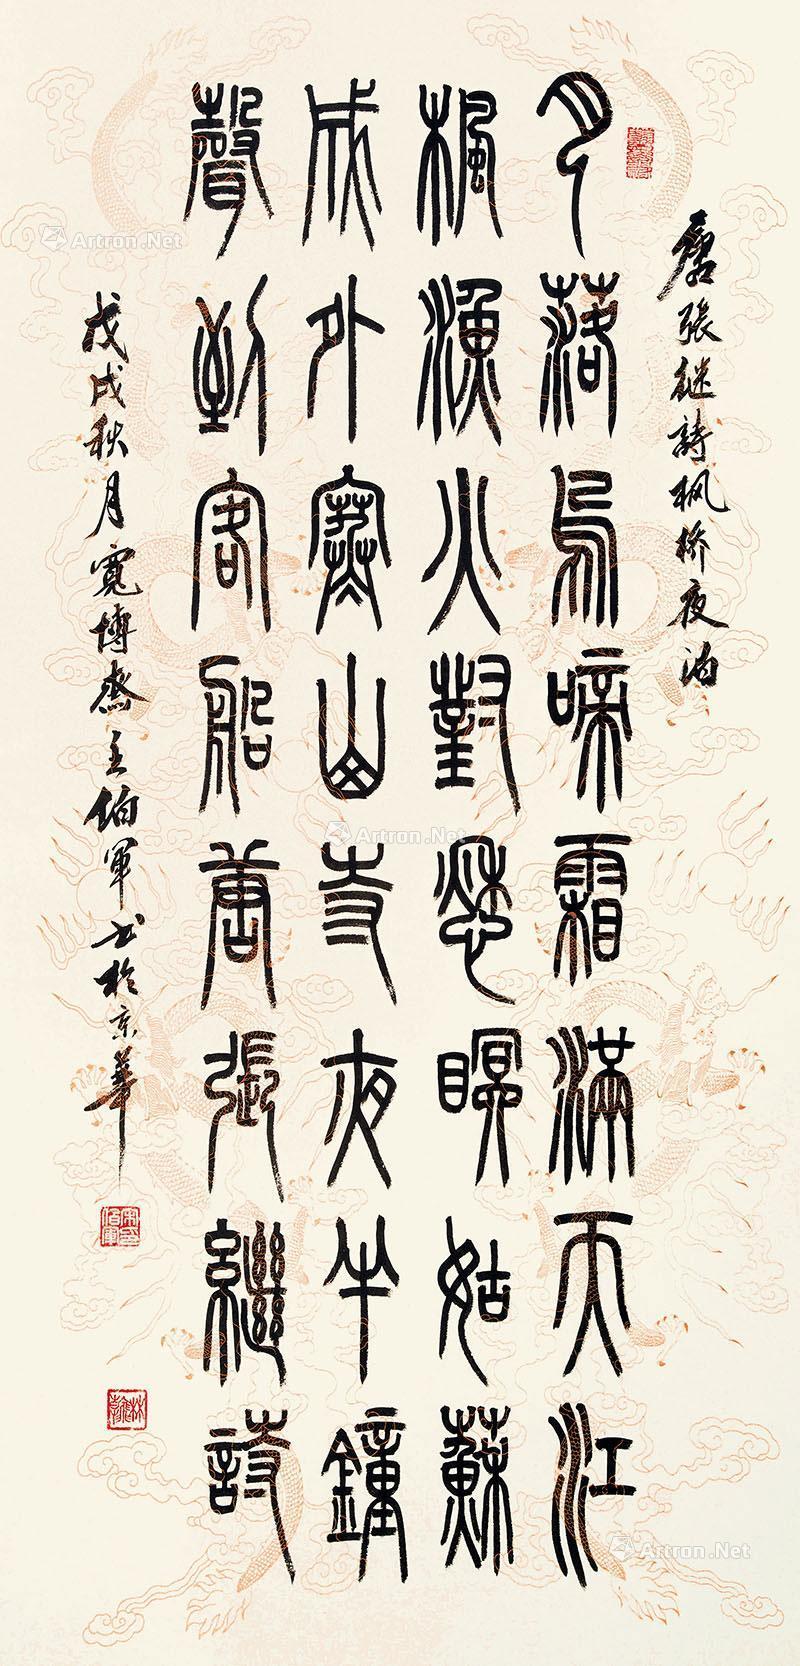 唐張継詩枫桥夜泊
月落烏啼霜滿天江
楓漁火對愁瞑姑蘇
成外寒山寺夜半鐘
聲到客船唐張繼詩
戊戌秋月寬博齋主伯軍书於京華
Artron.Net
Artron.Net
Artron.Net